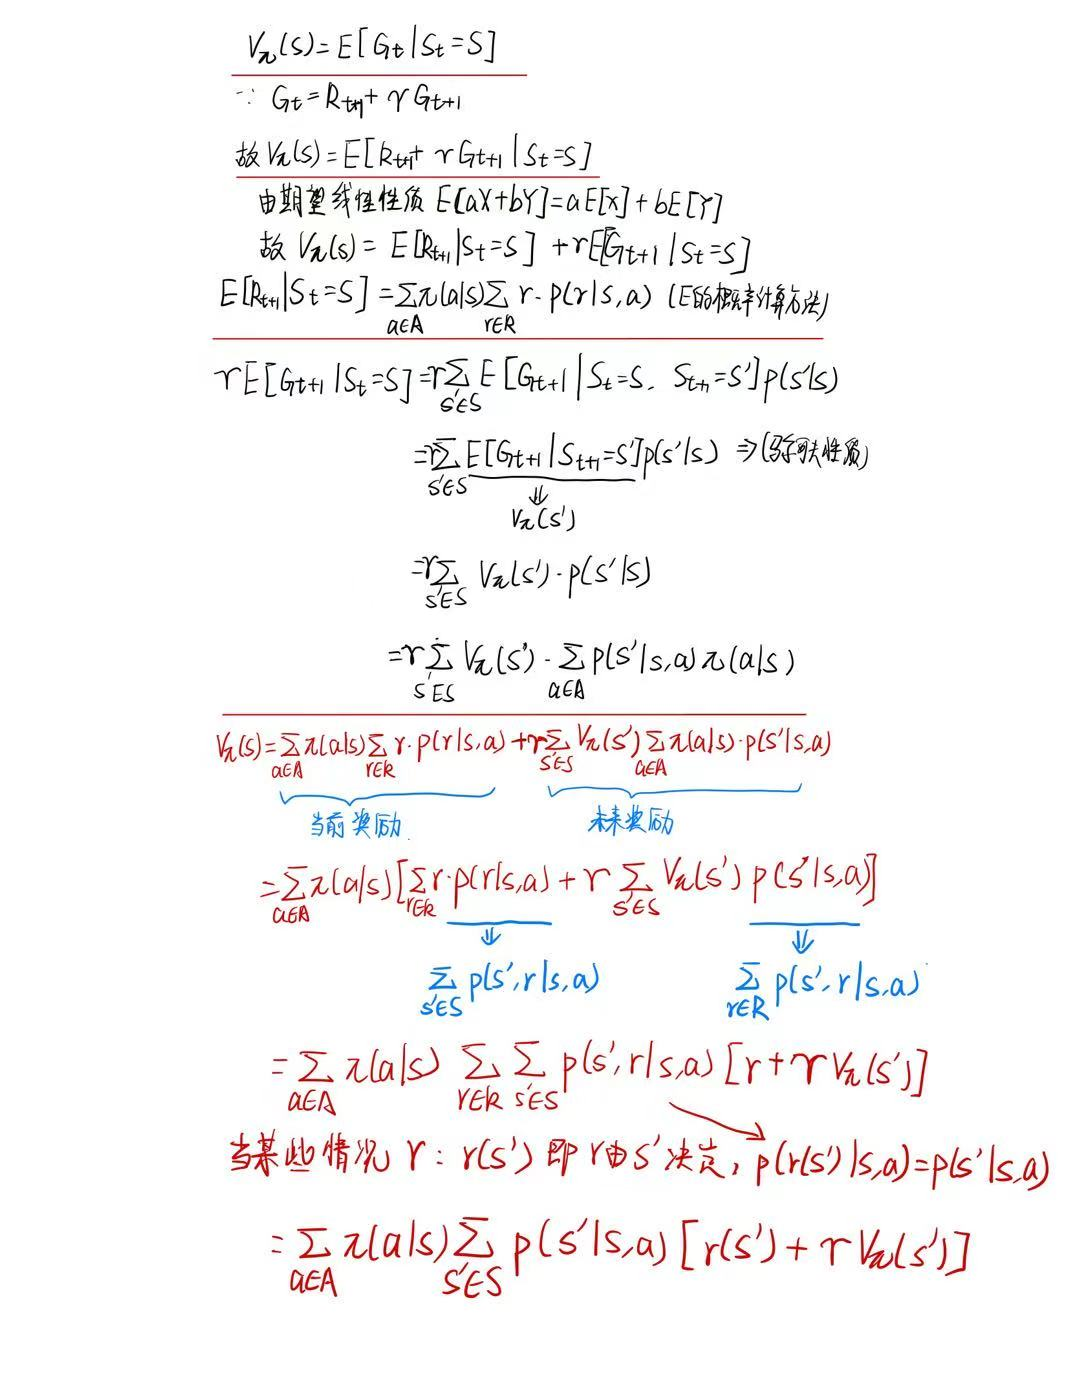 Vπ(s)=E[Gt|St=S]
∵ Gt=Rt+1+γGt+1
故Vπ(s)=E[Rt+1+γGt+1|St=S]
由期望线性性质 E[aX+bY]=aE[X]+bE[Y]
故 Vπ(s)=E[Rt+1|St=S]+γE[Gt+1|St=S]
E[Rt+1|St=S]=∑a∈A π(a|s)∑r∈R r·p(r|s,a) (E的概率计算方法)
γE[Gt+1|St=S]=γ∑s'∈S E[Gt+1|St=S, St+1=S']p(s'|s)
=γ∑s'∈S E[Gt+1|St+1=S']p(s'|s) ⇒(马尔可夫性质)
⇓
Vπ(s')
=γ∑s'∈S Vπ(s')·p(s'|s)
=γ∑s'∈S Vπ(s')·∑a∈A p(s'|s,a)π(a|s)
Vπ(s)=∑a∈A π(a|s)∑r∈R r·p(r|s,a)+γ∑s'∈S Vπ(s')∑a∈A π(a|s)·p(s'|s,a)
当前奖励 未来奖励
=∑a∈A π(a|s)[∑r∈R r·p(r|s,a)+γ∑s'∈S Vπ(s')p(s'|s,a)]
⇓ ⇓
∑s'∈S p(s',r|s,a) ∑r∈R p(s',r|s,a)
=∑a∈A π(a|s)∑r∈R∑s'∈S p(s',r|s,a)[r+γVπ(s')]
当某些情况 r:r(s')即r由s'决定,p(r(s')|s,a)=p(s'|s,a)
=∑a∈A π(a|s)∑s'∈S p(s'|s,a)[r(s')+γVπ(s')]